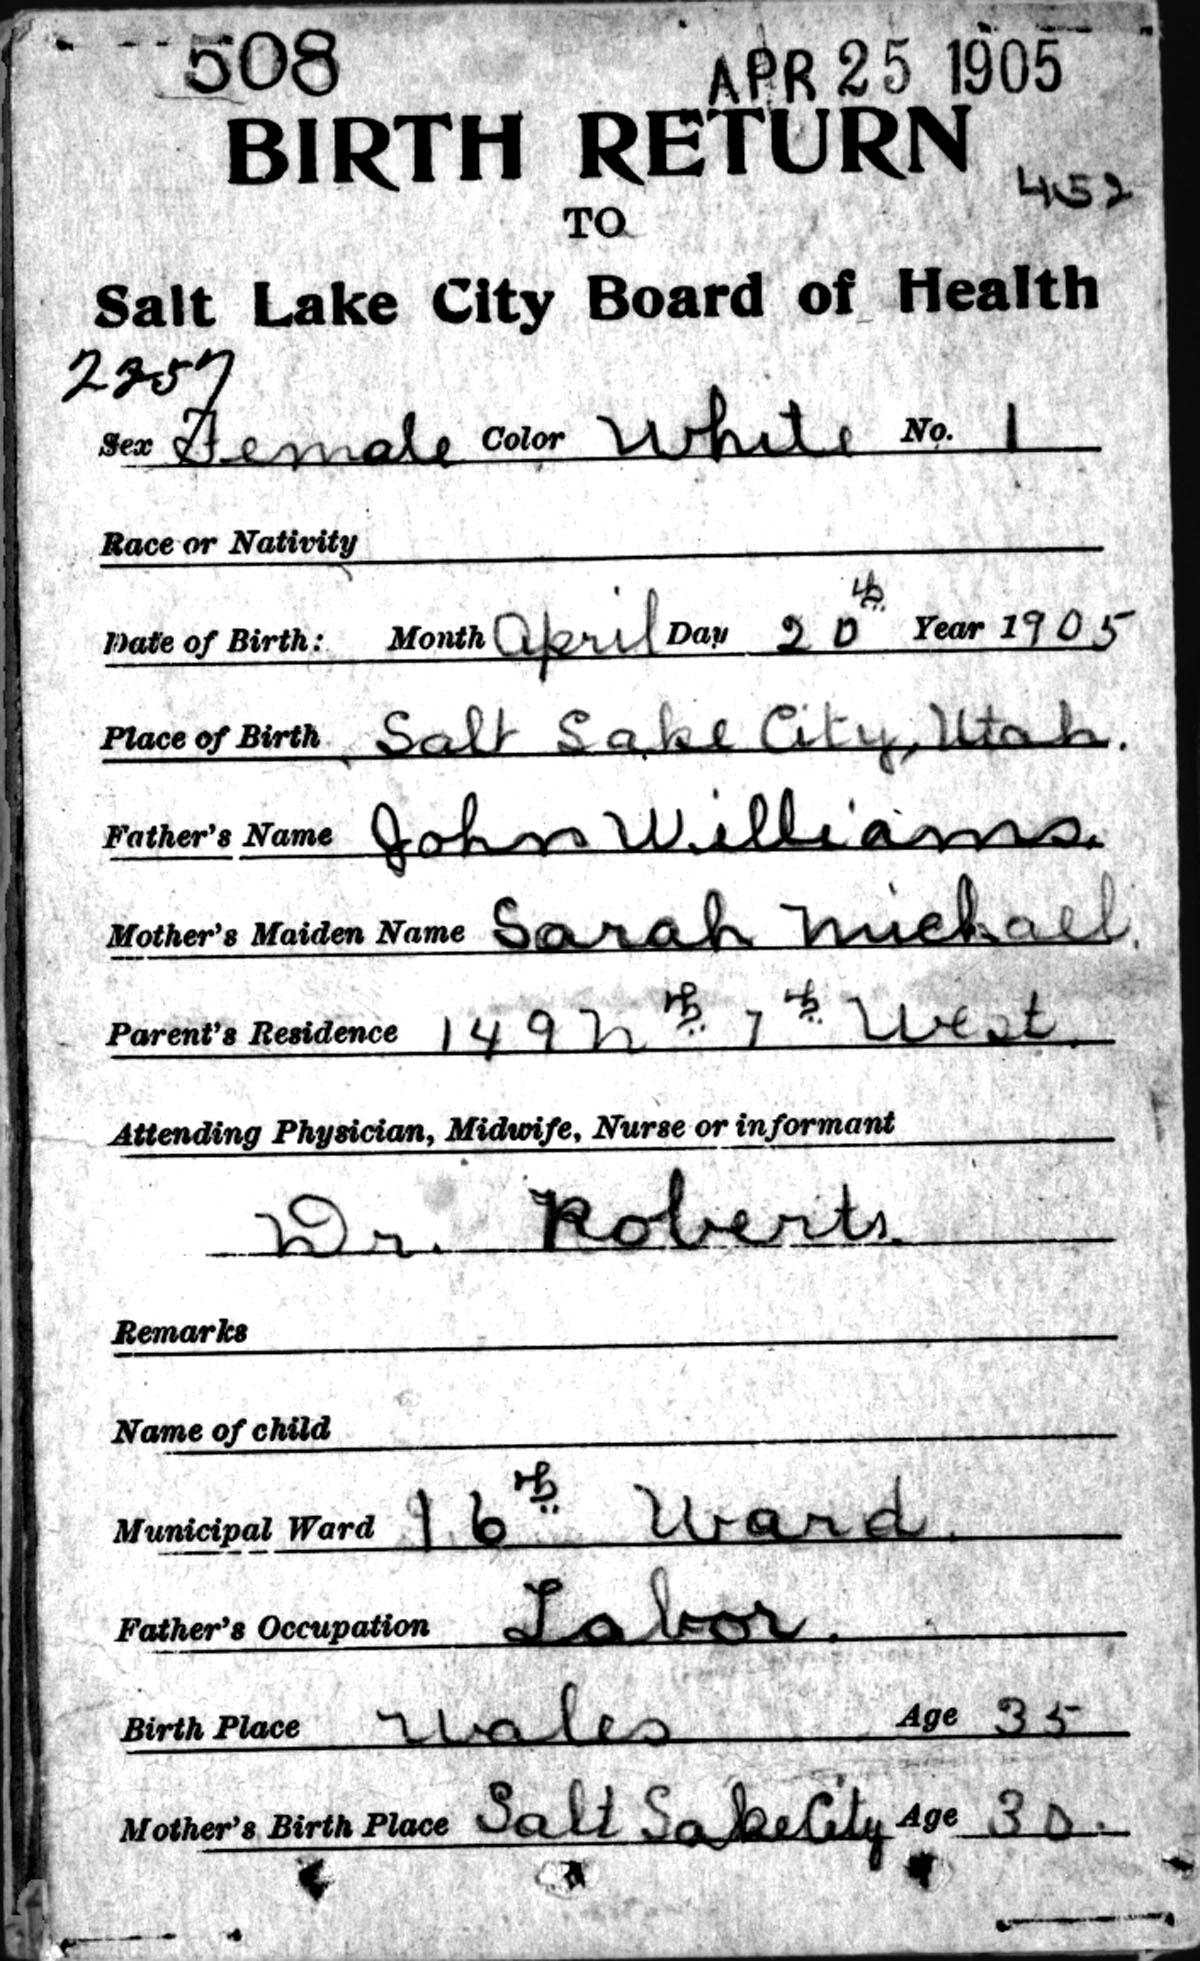 508 APR 25 1905
BIRTH RETURN
452
TO
Salt Lake City Board of Health
2257
Sex Female Color White No. 1
Race or Nativity
Date of Birth: Month April Day 20th Year 1905
Place of Birth Salt Lake City, Utah.
Father's Name John Williams.
Mother's Maiden Name Sarah Michael.
Parent's Residence 149 N th 7 th West.
Attending Physician, Midwife, Nurse or informant
Dr. Roberts.
Remarks
Name of child
Municipal Ward 16th Ward.
Father's Occupation Labor.
Birth Place Wales Age 35
Mother's Birth Place Salt Lake City Age 30.